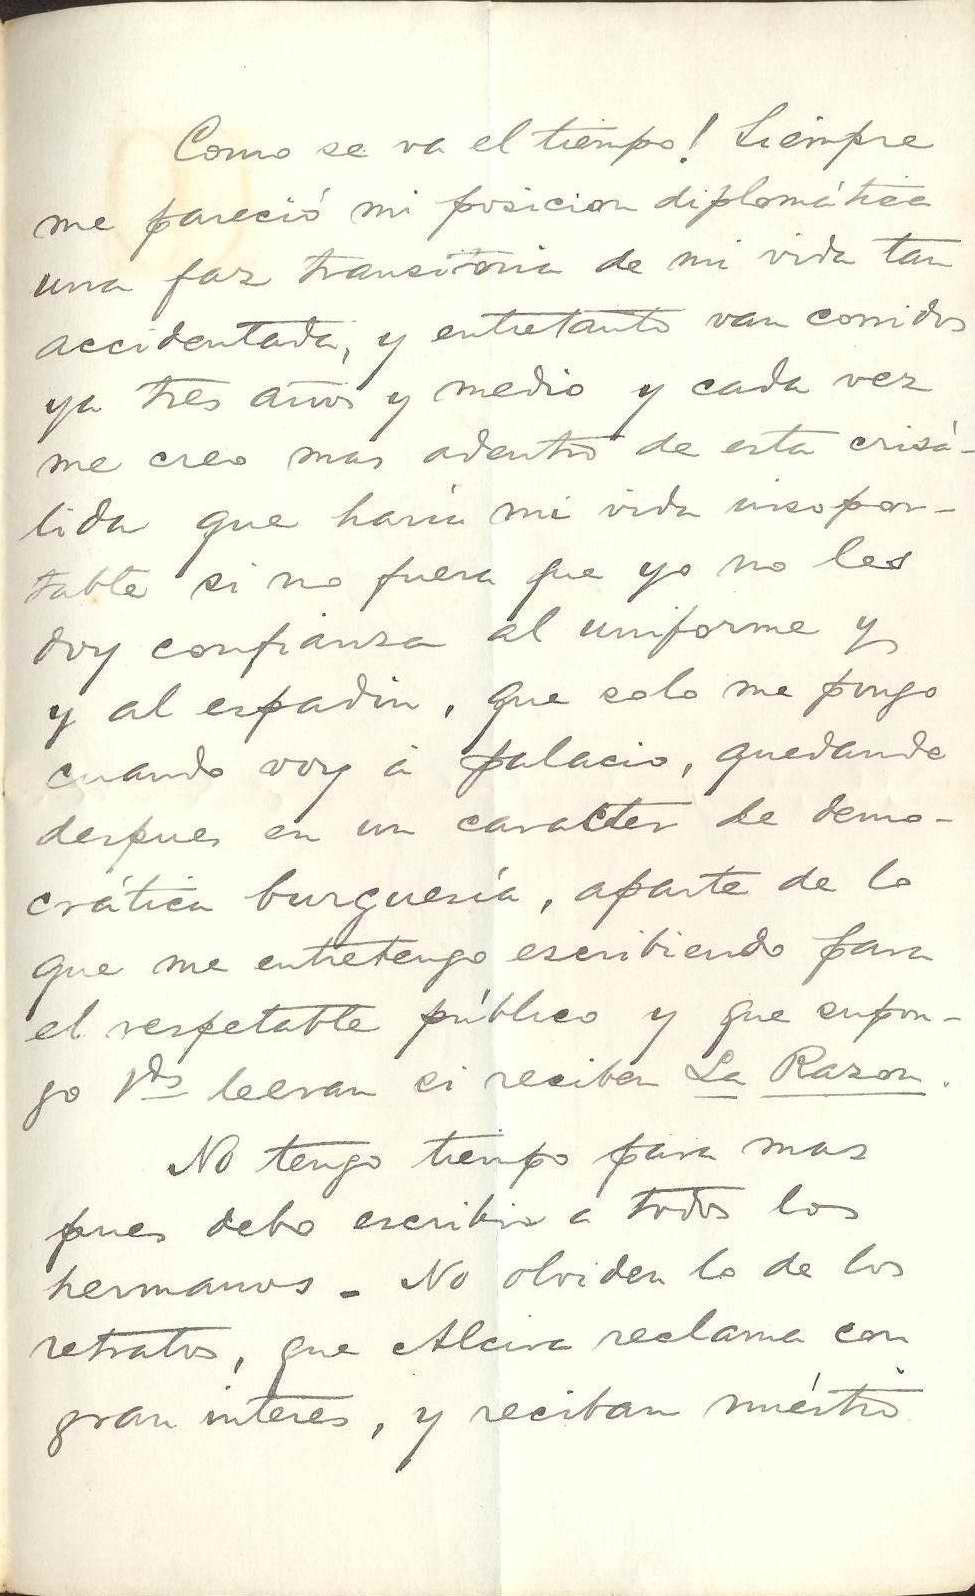 Como se va el tiempo! Siempre
me pareció mi posicion diplomática
una faz transitoria de mi vida tan
accidentada, y entretanto van corridos
ya tres años y medio y cada vez
me creo mas adentro de esta crisá-
lida que haria mi vida insopor-
table si no fuera que yo no les
doy confianza al uniforme y
y al espadin, que solo me pongo
cuando voy á palacio, quedando
despues en un caracter de demo-
crática burguesía, aparte de lo
que me entretengo escribiendo para
el respetable público y que supon-
go Vds leeran si reciben La Razon.
No tengo tiempo para mas
pues debo escribir a todos los
hermanos - No olviden lo de los
retratos, que Alcira reclama con
gran interes, y reciban nuéstro